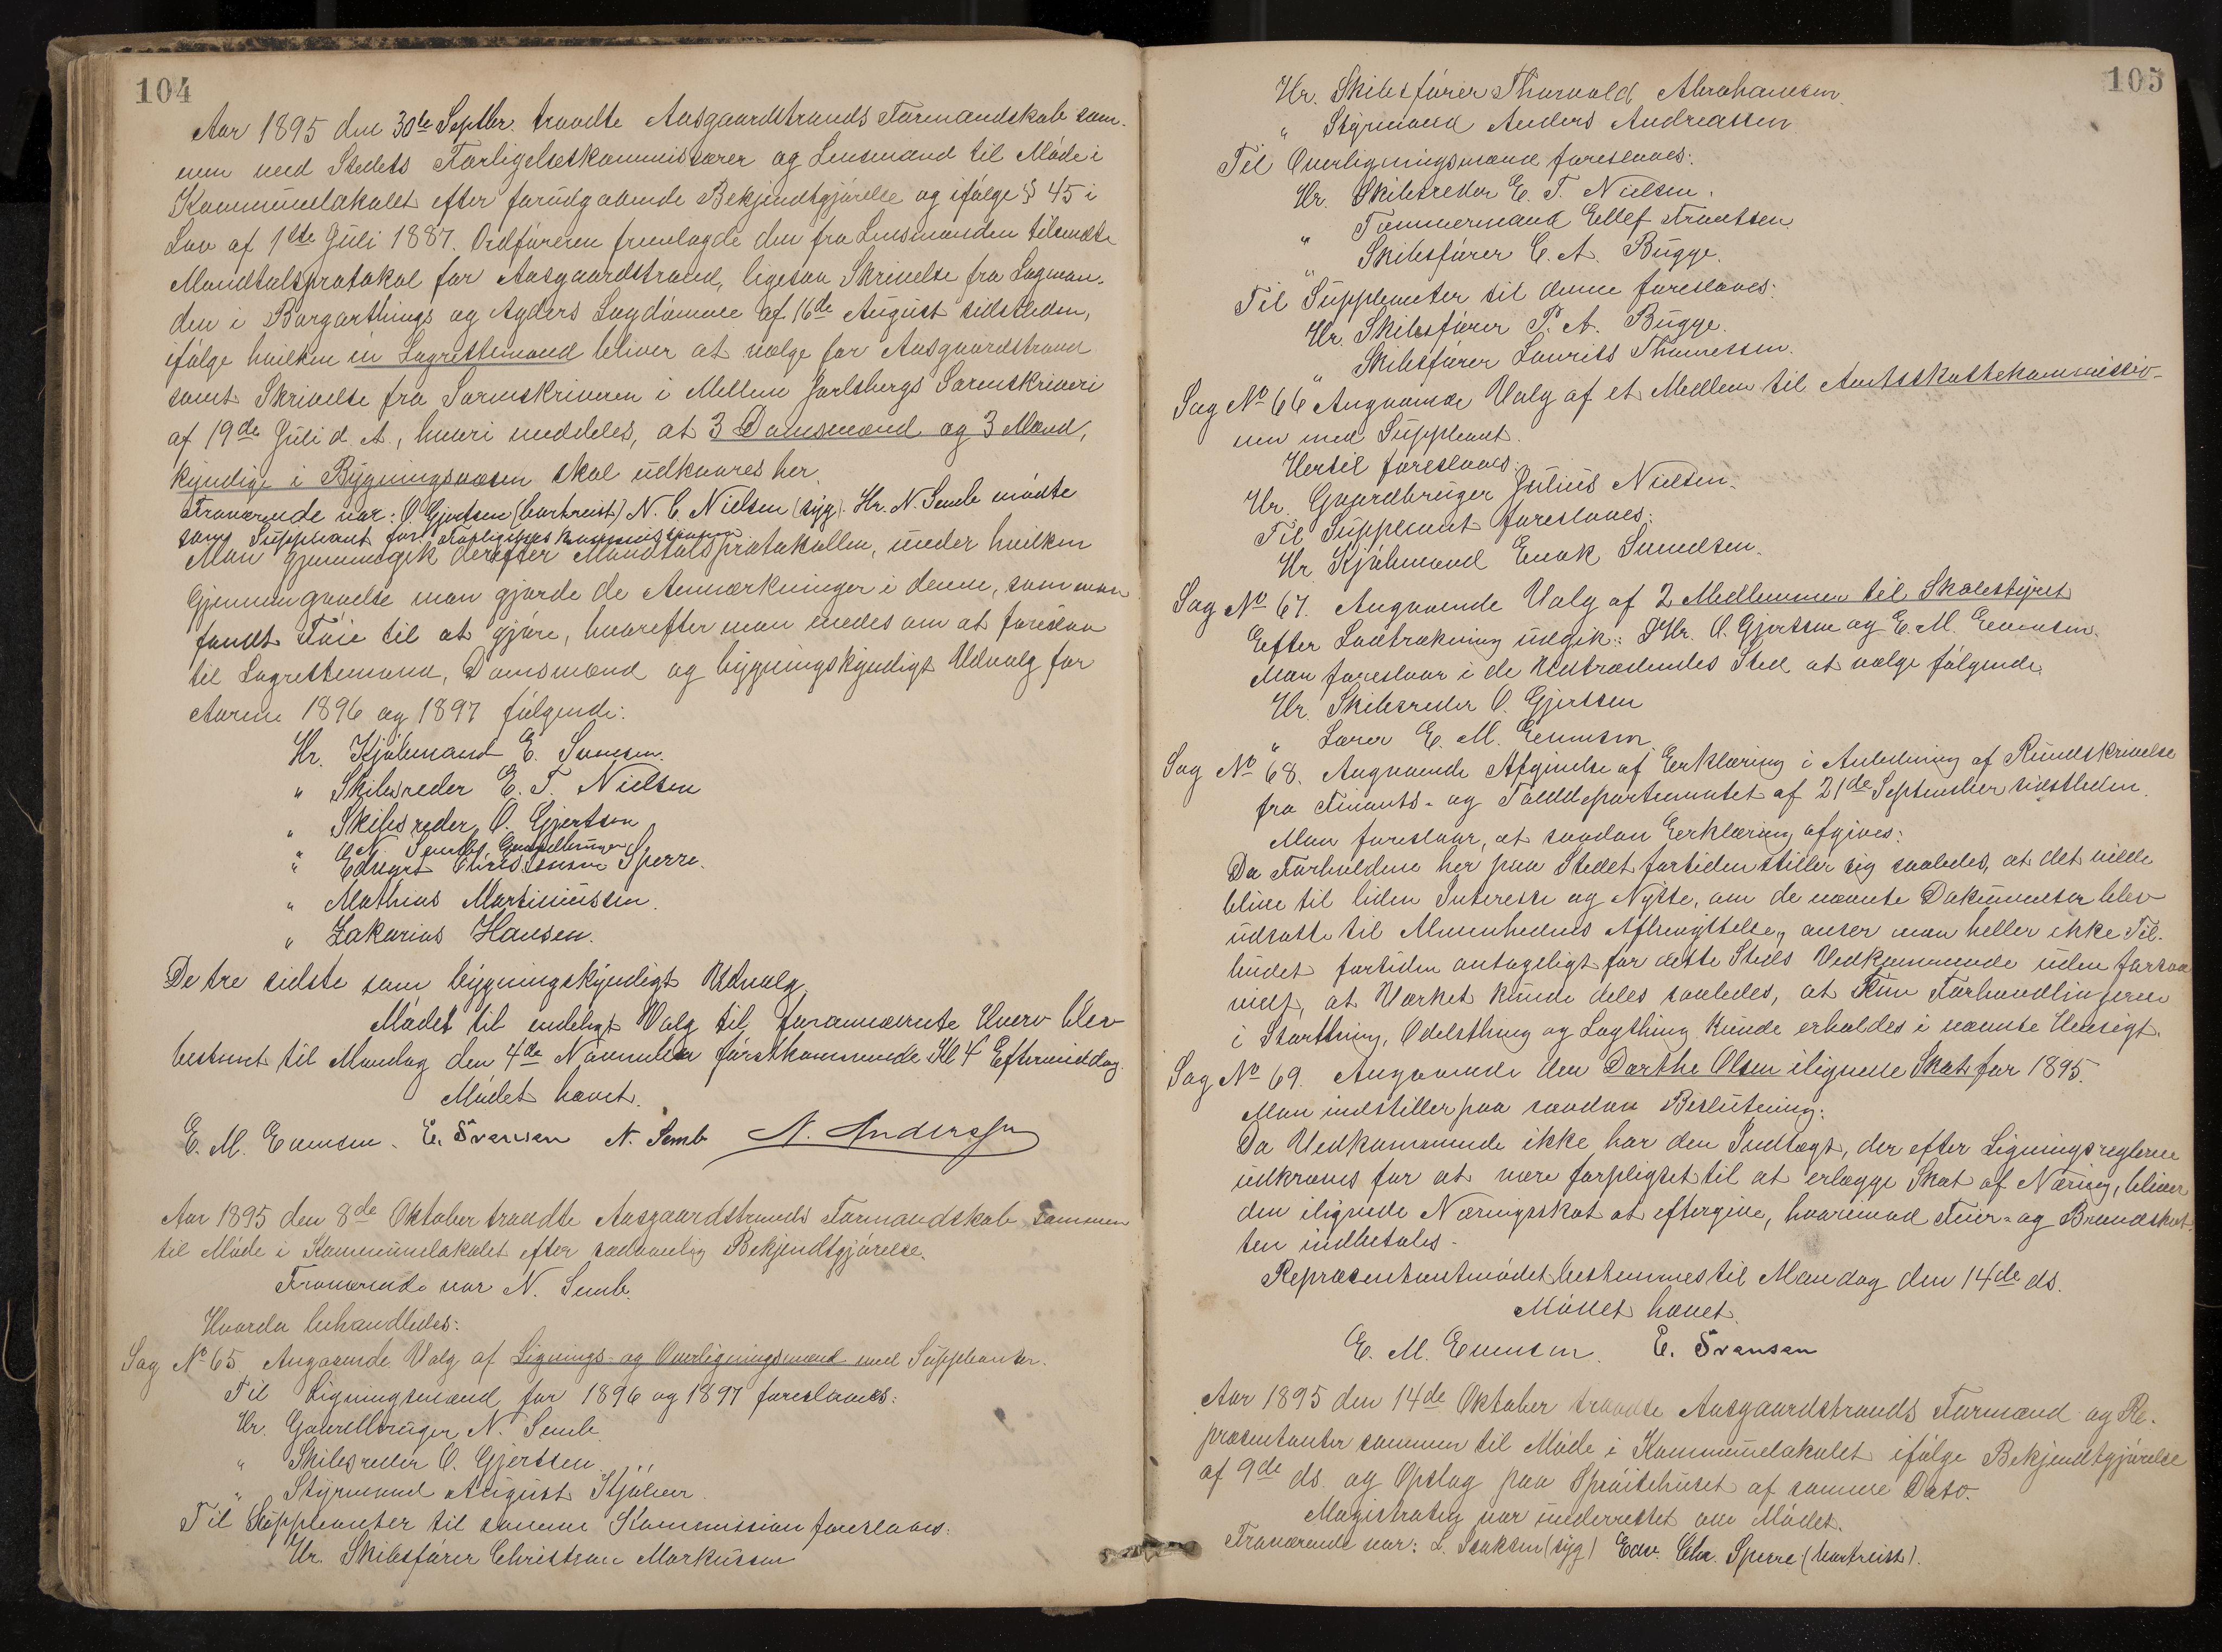 104
Aar 1895 den 30te Septbr. traadte Aasgaardstrands Formandskab sam-
men med Stedets Forligelseskommissærer og Lensmand til Møde i
Kommunelokalet efter forudgaaende Bekjendtgjørelse og ifølge § 45 i
Lov af 1ste Juli 1887. Ordføreren fremlagde den fra Lensmanden tilsendte
Mandtalsprotokol for Aasgaardstrand, ligesaa Skrivelse fra Lagman-
den i Borgarthings og Agders Lagdømme af 16de August sidstleden,
ifølge hvilken én Lagrettemand bliver at vælge for Aasgaardstrand
samt Skrivelse fra Sorenskriveren i Mellem Jarlsbergs Sorenskriveri
af 19de Juli d. A., hvori meddeles, at 3 Domsmænd og 3 Mænd,
kyndige i Bygningsvæsen skal udkaares her.
Fraværende var: O. Gjertsen (bortreist) N. C. Nielsen (syg). Hr. N. Semb mødte
som Suppleant for Forligelseskommissionen
Man gjennemgik derefter Mandtalsprotokollen, under hvilken
Gjennemgaaelse man gjorde de Anmærkninger i denne, som man
fandt Føie til at gjøre, hvorefter man enedes om at foreslaa
til Lagrettemand, Domsmænd og bygningskyndigt Udvalg for
Aarene 1896 og 1897 følgende:
Hr. Kjøbmand E. Svensen.
" Skibsreder E. T. Nielsen
" Skibsreder O. Gjertsen
" N. Semb, Gaardbruger
" Edvart Christensen Sperre.
" Mathias Martiniussen.
" Zakarias Hansen.
De tre sidste som bygningskyndigt Udvalg.
Mødet til endeligt Valg til forannævnte Hverv blev
bestemt til Mandag den 4de November førstkommende Kl 4 Eftermiddag.
Mødet hævet.
E. M. Evensen. E. Svensen N. Semb N. Anderssen
Aar 1895 den 8de Oktober traadte Aasgaardstrands Formandskab sammen
til Møde i Kommunelokalet efter sædvanlig Bekjendtgjørelse.
Fraværende var N. Semb.
Hvorda behandledes:
Sag No 65. Angaaende Valg af Lignings- og Overligningsmænd med Suppleanter.
Til Ligningsmænd for 1896 og 1897 foreslaaes:
Hr. Gaardbruger N. Semb.
" Skibsreder O. Gjertsen.
" Styrmand August Kjølner.
Til Suppleanter til samme Kommission foreslaaes:
Hr. Skibsfører Christian Markussen
105
Hr. Skibsfører Thorvald Abrahamsen.
" Styrmand Anders Andreassen
Til Overligningsmænd foreslaaes:
Hr. Skibsreder E. T. Nielsen.
" Tømmermand Ellef Frantsen.
" Skibsfører C. A. Bugge.
Til Suppleanter til denne foreslaaes:
Hr. Skibsfører P. A. Bugge.
" Skibsfører Laurits Thoresen.
Sag No 66 Angaaende Valg af et Medlem til Amtsskattekommissio-
nen med Suppleant.
Hertil foreslaaes:
Hr. Gaardbruger Julius Nielsen.
Til Suppleant foreslaaes:
Hr. Kjøbmand Enok Svendsen.
Sag No 67. Angaaende Valg af 2 Medlemmer til Skolestyret
Efter Lodtrækning udgik: DHr. O. Gjertsen og E. M. Evensen.
Man foreslaar i de Udtrædendes Sted at vælge følgende:
Hr. Skibsreder O. Gjertsen
" Lærer E. M. Evensen
Sag No 68. Angaaende Afgivelse af Erklæring i Anledning af Rundskrivelse
fra Finants- og Tolddepartementet af 21de September sidstleden.
Man foreslaar, at saadan Erklæring afgives:
Da Forholdene her paa Stedet fortiden stiller sig saaledes, at det vilde
blive til liden Interesse og Nytte, om de nævnte Dokumenter blev
udsatte til Almenhedens Afbenyttelse, anser man heller ikke Til-
budet fortiden antageligt for dette Steds Vedkommende uden forsaa-
vidt, at Værket kunde deles saaledes, at Kun Forhandlingerne
i Storthing, Odelsthing og Lagthing kunde erholdes i nævnte Hensigt.
Sag No 69. Angaaende den Dorthe Olsen ilignede Skat for 1895.
Man indstiller paa saadan Beslutning:
Da Vedkommende ikke har den Indtægt, der efter Ligningsreglerne
udkræves for at være forpligtet til at erlægge Skat af Næring, bliver
den ilignede Næringsskat at eftergive, hvorimod Feier- og Brandskat-
ten indbetales.
Repræsentantmødet bestemmes til Mandag den 14de ds.
Mødet hævet.
E. M. Evensen. E. Svensen
Aar 1895 den 14de Oktober traadte Aasgaardstrands Formænd og Re-
præsentanter sammen til Møde i Kommunelokalet ifølge Bekjendtgjørelse
af 9de ds. og Opslag paa Sprøitehuset af samme Dato.
Magistraten var underrettet om Mødet.
Fraværende var: L. Isaksen (syg) Edv. Chr. Sperre (bortreist).